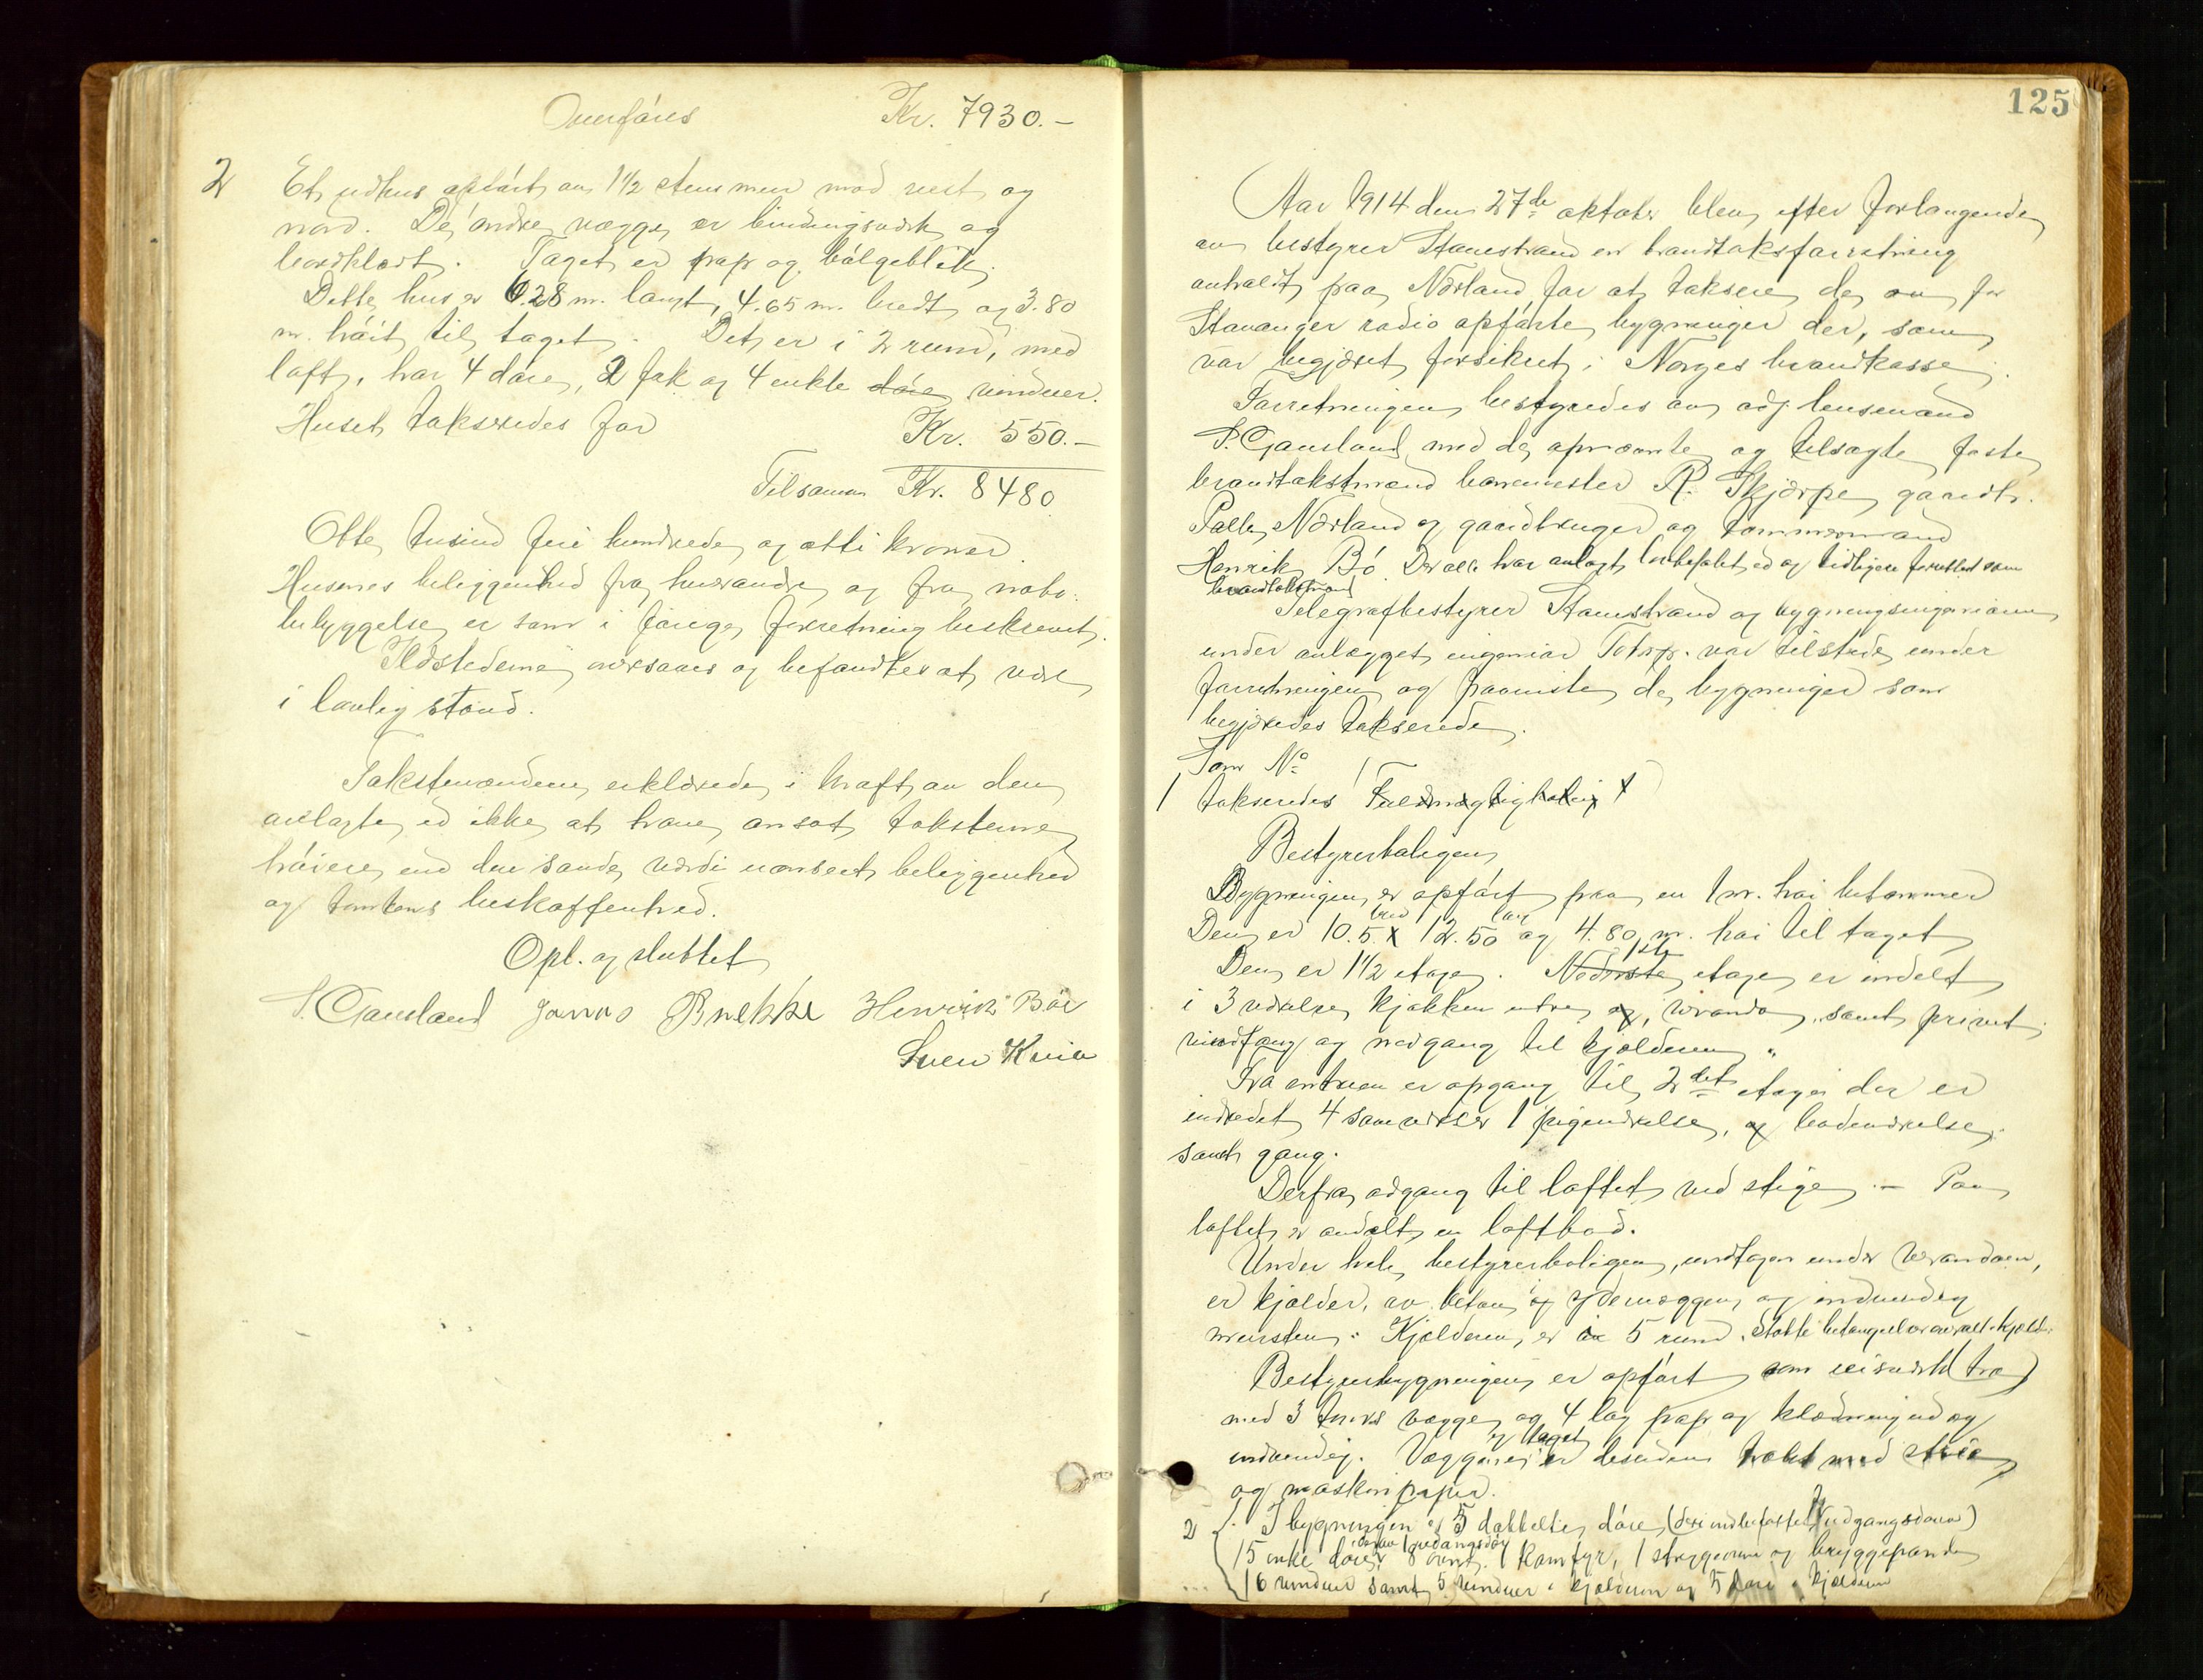 Overføres Kr. 7930.-
2 Et udhus opført av 1½ stens mur mod vest og
nord. De andre vægge er bindingsverk og
bordklædt. Taget er pap og bølgeblik.
Dette hus er 6.28 m. langt, 4.65 m. bredt og 3.80
m. høit til taget. Det er i 2 rum, med
loft, har 4 døre, 2 fak og 4 enkle døre vinduer.
Huset takseredes for Kr. 550.-
Tilsamen Kr. 8480
Otte tusind fire hundrede og otti kroner.
Husenes beliggenhed fra hverandre og fra nabo-
bebyggelse er som i forrige forretning beskrevet.
Ildstederne oversaaes og befandtes at være
i lovlig stand.
Takstmændene erklærede i kraft av den
avlagte ed ikke at have ansat taksterne
høiere end den sande værdi uanseet beliggenhed
og tomtens beskaffenhed.
Opl. og sluttet
S. Gausland Jonas Brekke Henrik Böe
Sven Kvia
125
Aar 1914 den 27de oktober blev efter forlangende
av bestyrer Stamstrand en brandtaksforretning
avholdt paa Nærland for at taksere de av for
Stavanger radio opførte bygninger der, som
var begjæret forsikret i Norges brandkasse.
Forretningen bestyredes av adj. lensmand
S. Gausland med de opnævnte og tilsagte faste
brandtakstmænd havnemester R. Skjærpe, gaardbr.
Palle Nærland og gaardbruger og tømmermand
Henrik Bö. Der alle har avlagt lovbefalet ed og tidligere forrettet som
brandtakstmænd
Telegrafbestyrer Stamstrand og bygningsingeniøren
under anlægget, ingeniør var tilstede under
forretningen og paaviste de bygninger som
begjæredes takserede.
Som No
1 takseredes
Bestyrerboligen
Bygningen er opført paa en 1 m. høi betonmur
Den er 10.5 bred x 12.50 lang og 4.80 m. høi til taget
Den er 1½ etage. Nederste 1ste etage er indelt
i 3 værelser, kjøkken entre og, veranda, samt privet,
vindfang og nedgang til kjælderen.
Fra entreen er opgang til 2det etage der er
indredet 4 soveværelser 1 pigeværelse, og badeværelse,
samt gang.
Derfra adgang til loftet ved stige. - Paa
loftet er avdelt en loftbod.
Under hele bestyrerboligen, undtagen under verandaen,
er kjælder, av beton i ydervæggene og indvendig
mursten. Kjælderen er i 5 rum. Støbte betongulv overalt i kjæld.
Bestyrerbygningen er opført som reisverk (træ)
med 3 toms vægge og 4 lag pap og klædning ud og
indvendig. Væggene og taget er desuden trukket med strie
og maskinpapir.
2 I bygningen er 5 dobbelte døre, (deri indbefattet 2 udgangsdøre)
15 enke døre, derav 1 udgangsdør 8 ovne, 1 komfyr, 1 strygeovn og bryggepande
16 vinduer samt 5 vinduer i kjælderen og 5 døre i kjælderen